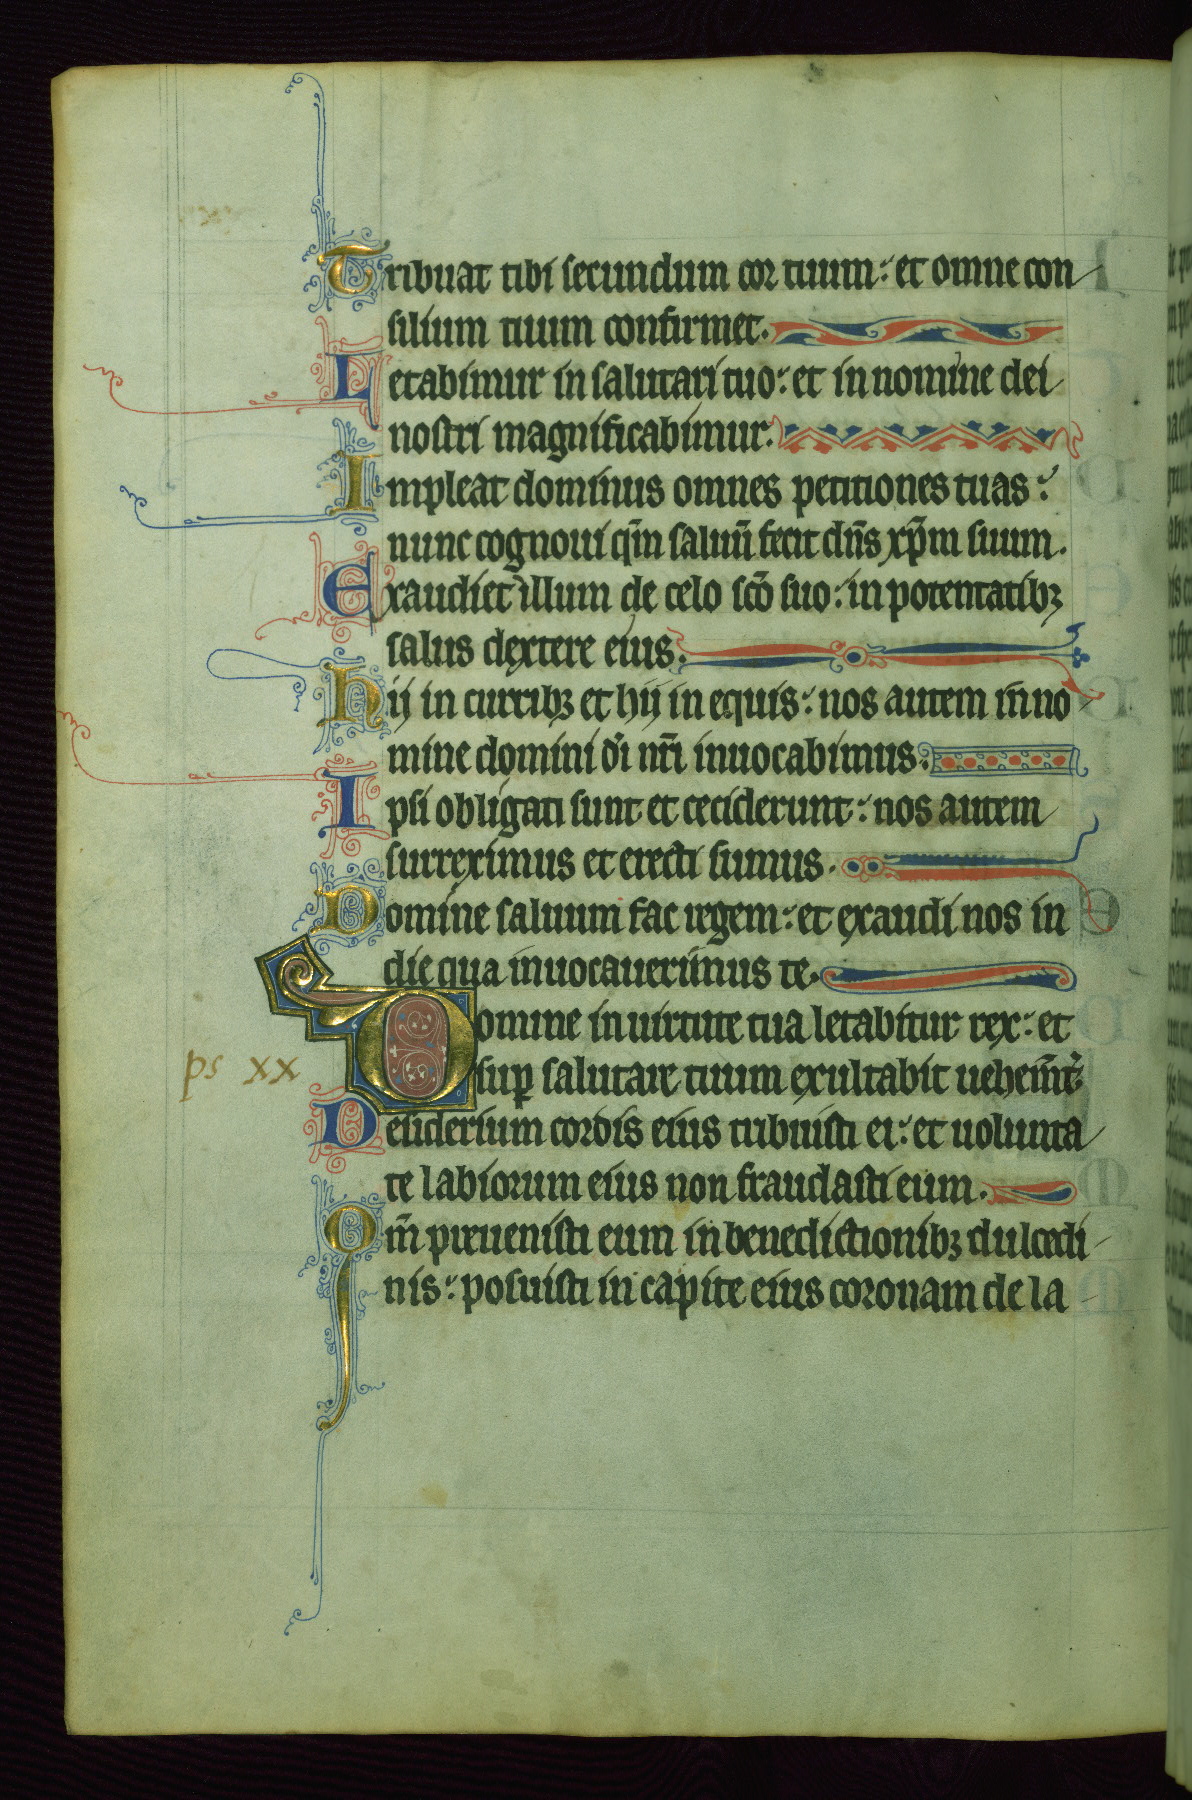 Tribuat tibi secundum cor tuum: et omne con
silium tuum confirmet.
Letabimur in salutari tuo: et in nomine dei
nostri magnificabimur.
Impleat dominus omnes petitiones tuas:
nunc cognoui qm̄ saluū fecit dn̄s xp̄m suum.
Exaudiet illum de celo sc̄o suo: in potentatibꝫ
salus dextere eius.
hij in curribꝫ et hij in equis: nos autem in no
mine domini dī nr̄i inuocabimus.
Ipsi obligati sunt et ceciderunt: nos autem
surreximus et erecti sumus.
Domine saluum fac regem: et exaudi nos in
die qua inuocauerimus te.
Domine in uirtute tua letabitur rex: et
ps xx
sup̱ salutare tuum exultabit uehem̄t̓
Desiderium cordis eius tribuisti ei: et uolunta
te labiorum eius non fraudasti eum.
Qm̄ preuenisti eum in benedictionibꝫ dulcedi
nis: posuisti in capite eius coronam de la